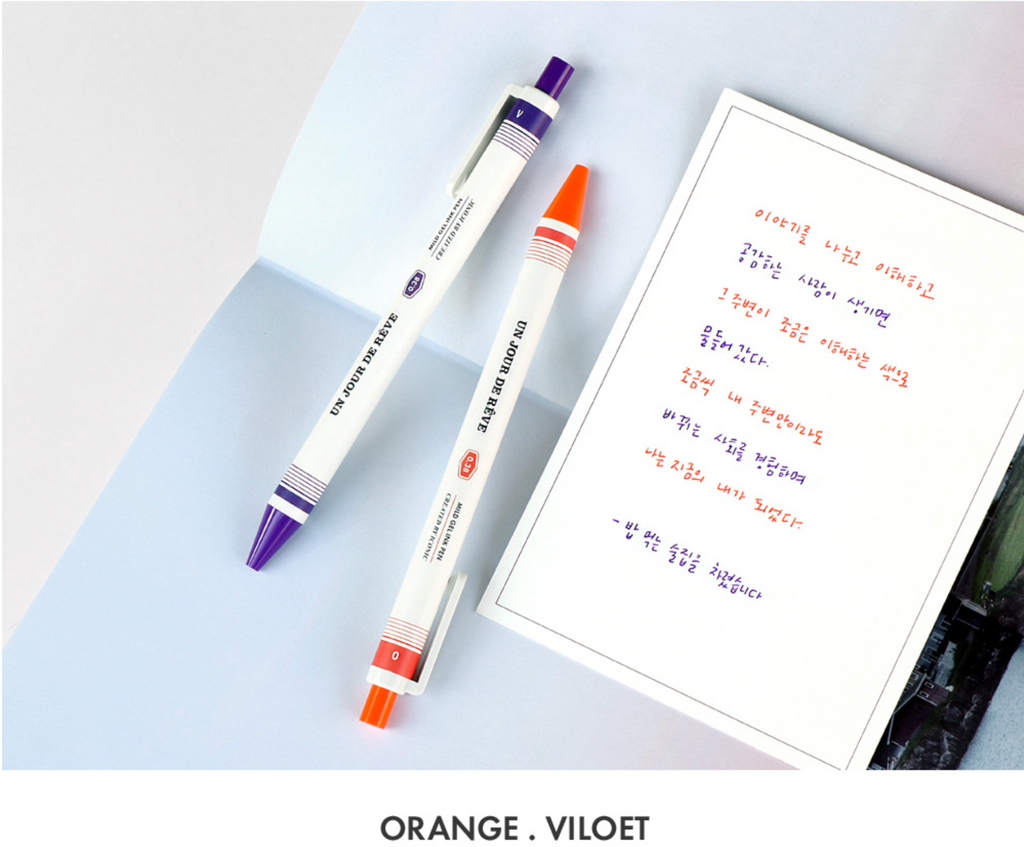 V
MILD GEL INK PEN
CREATED BY ICONIC
0.38
UN JOUR DE RÊVE
UN JOUR DE RÊVE
0.38
MILD GEL INK PEN
CREATED BY ICONIC
O
이야기를 나누고 이해하고
공감하는 사람이 생기면
그 주변이 조금은 이해하는 색으로
물들어 갔다.
조금씩 내 주변만이라도
바뀌는 사회를 경험하며
나는 지금의 내가 되었다.
- 밥 먹는 술집을 차렸습니다
ORANGE . VILOET